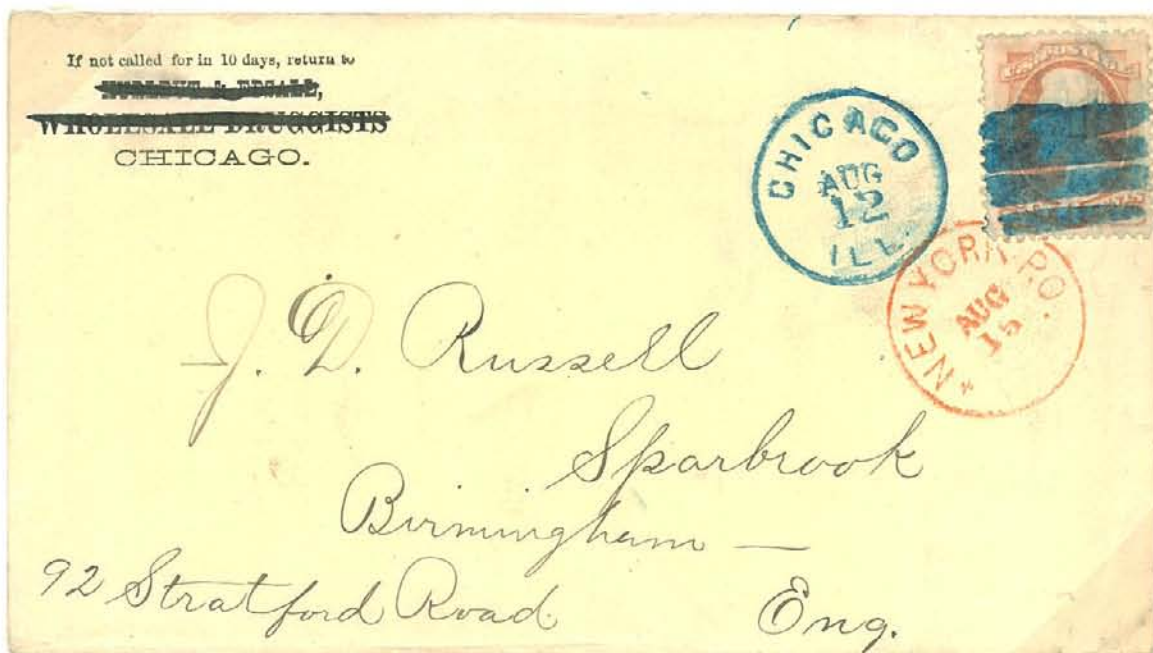 If not called for in 10 days, return to
WHOLESALE DRUGGISTS
CHICAGO.
CHICAGO
AUG
12
ILL.
NEW YORK P.O.
AUG
15
J. D. Russell
Sparbrook
Birmingham —
92 Stratford Road
Eng.